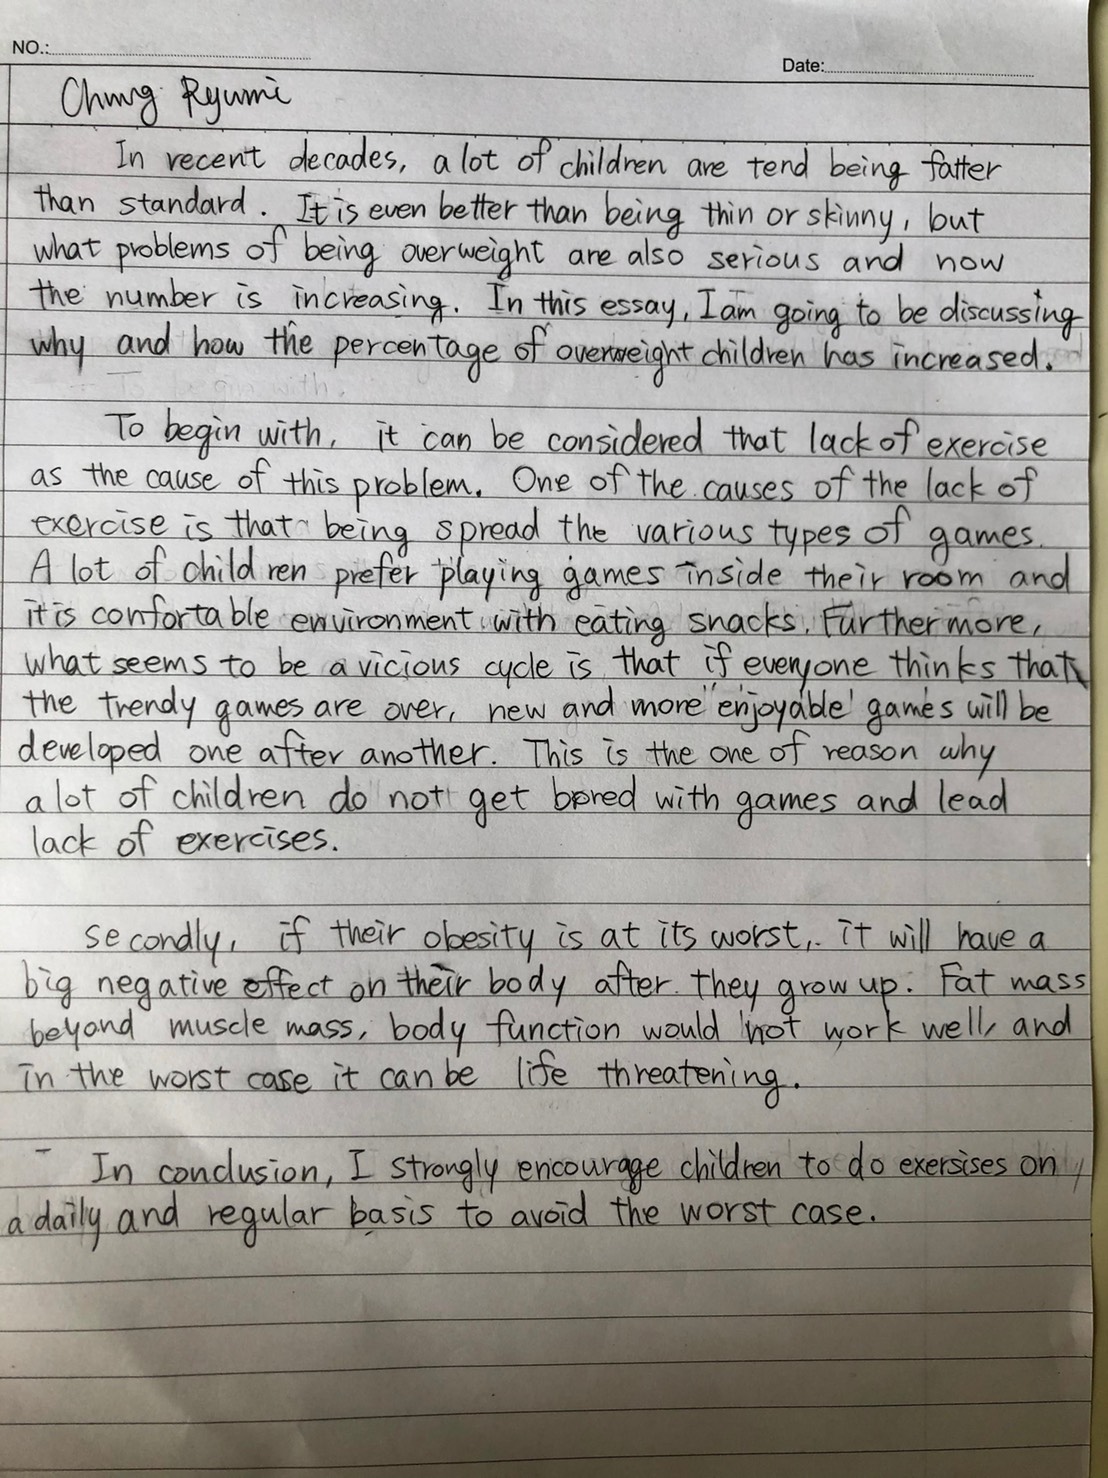 NO.:
Date:
Chung Ryumi
In recent decades, a lot of children are tend being fatter
than standard. It is even better than being thin or skinny, but
what problems of being overweight are also serious and now
the number is increasing. In this essay, I am going to be discussing
why and how the percentage of overweight children has increased.
To begin with, it can be considered that lack of exercise
as the cause of this problem. One of the causes of the lack of
exercise is that being spread the various types of games.
A lot of children prefer playing games inside their room and
it is confortable environment with eating snacks. Furthermore,
what seems to be a vicious cycle is that if everyone thinks that
the trendy games are over, new and more enjoyable games will be
developed one after another. This is the one of reason why
a lot of children do not get bored with games and lead
lack of exercises.
Secondly, if their obesity is at its worst, it will have a
big negative effect on their body after they grow up. Fat mass
beyond muscle mass, body function would not work well, and
in the worst case it can be life threatening.
In conclusion, I strongly encourage children to do exersises on
a daily and regular basis to avoid the worst case.